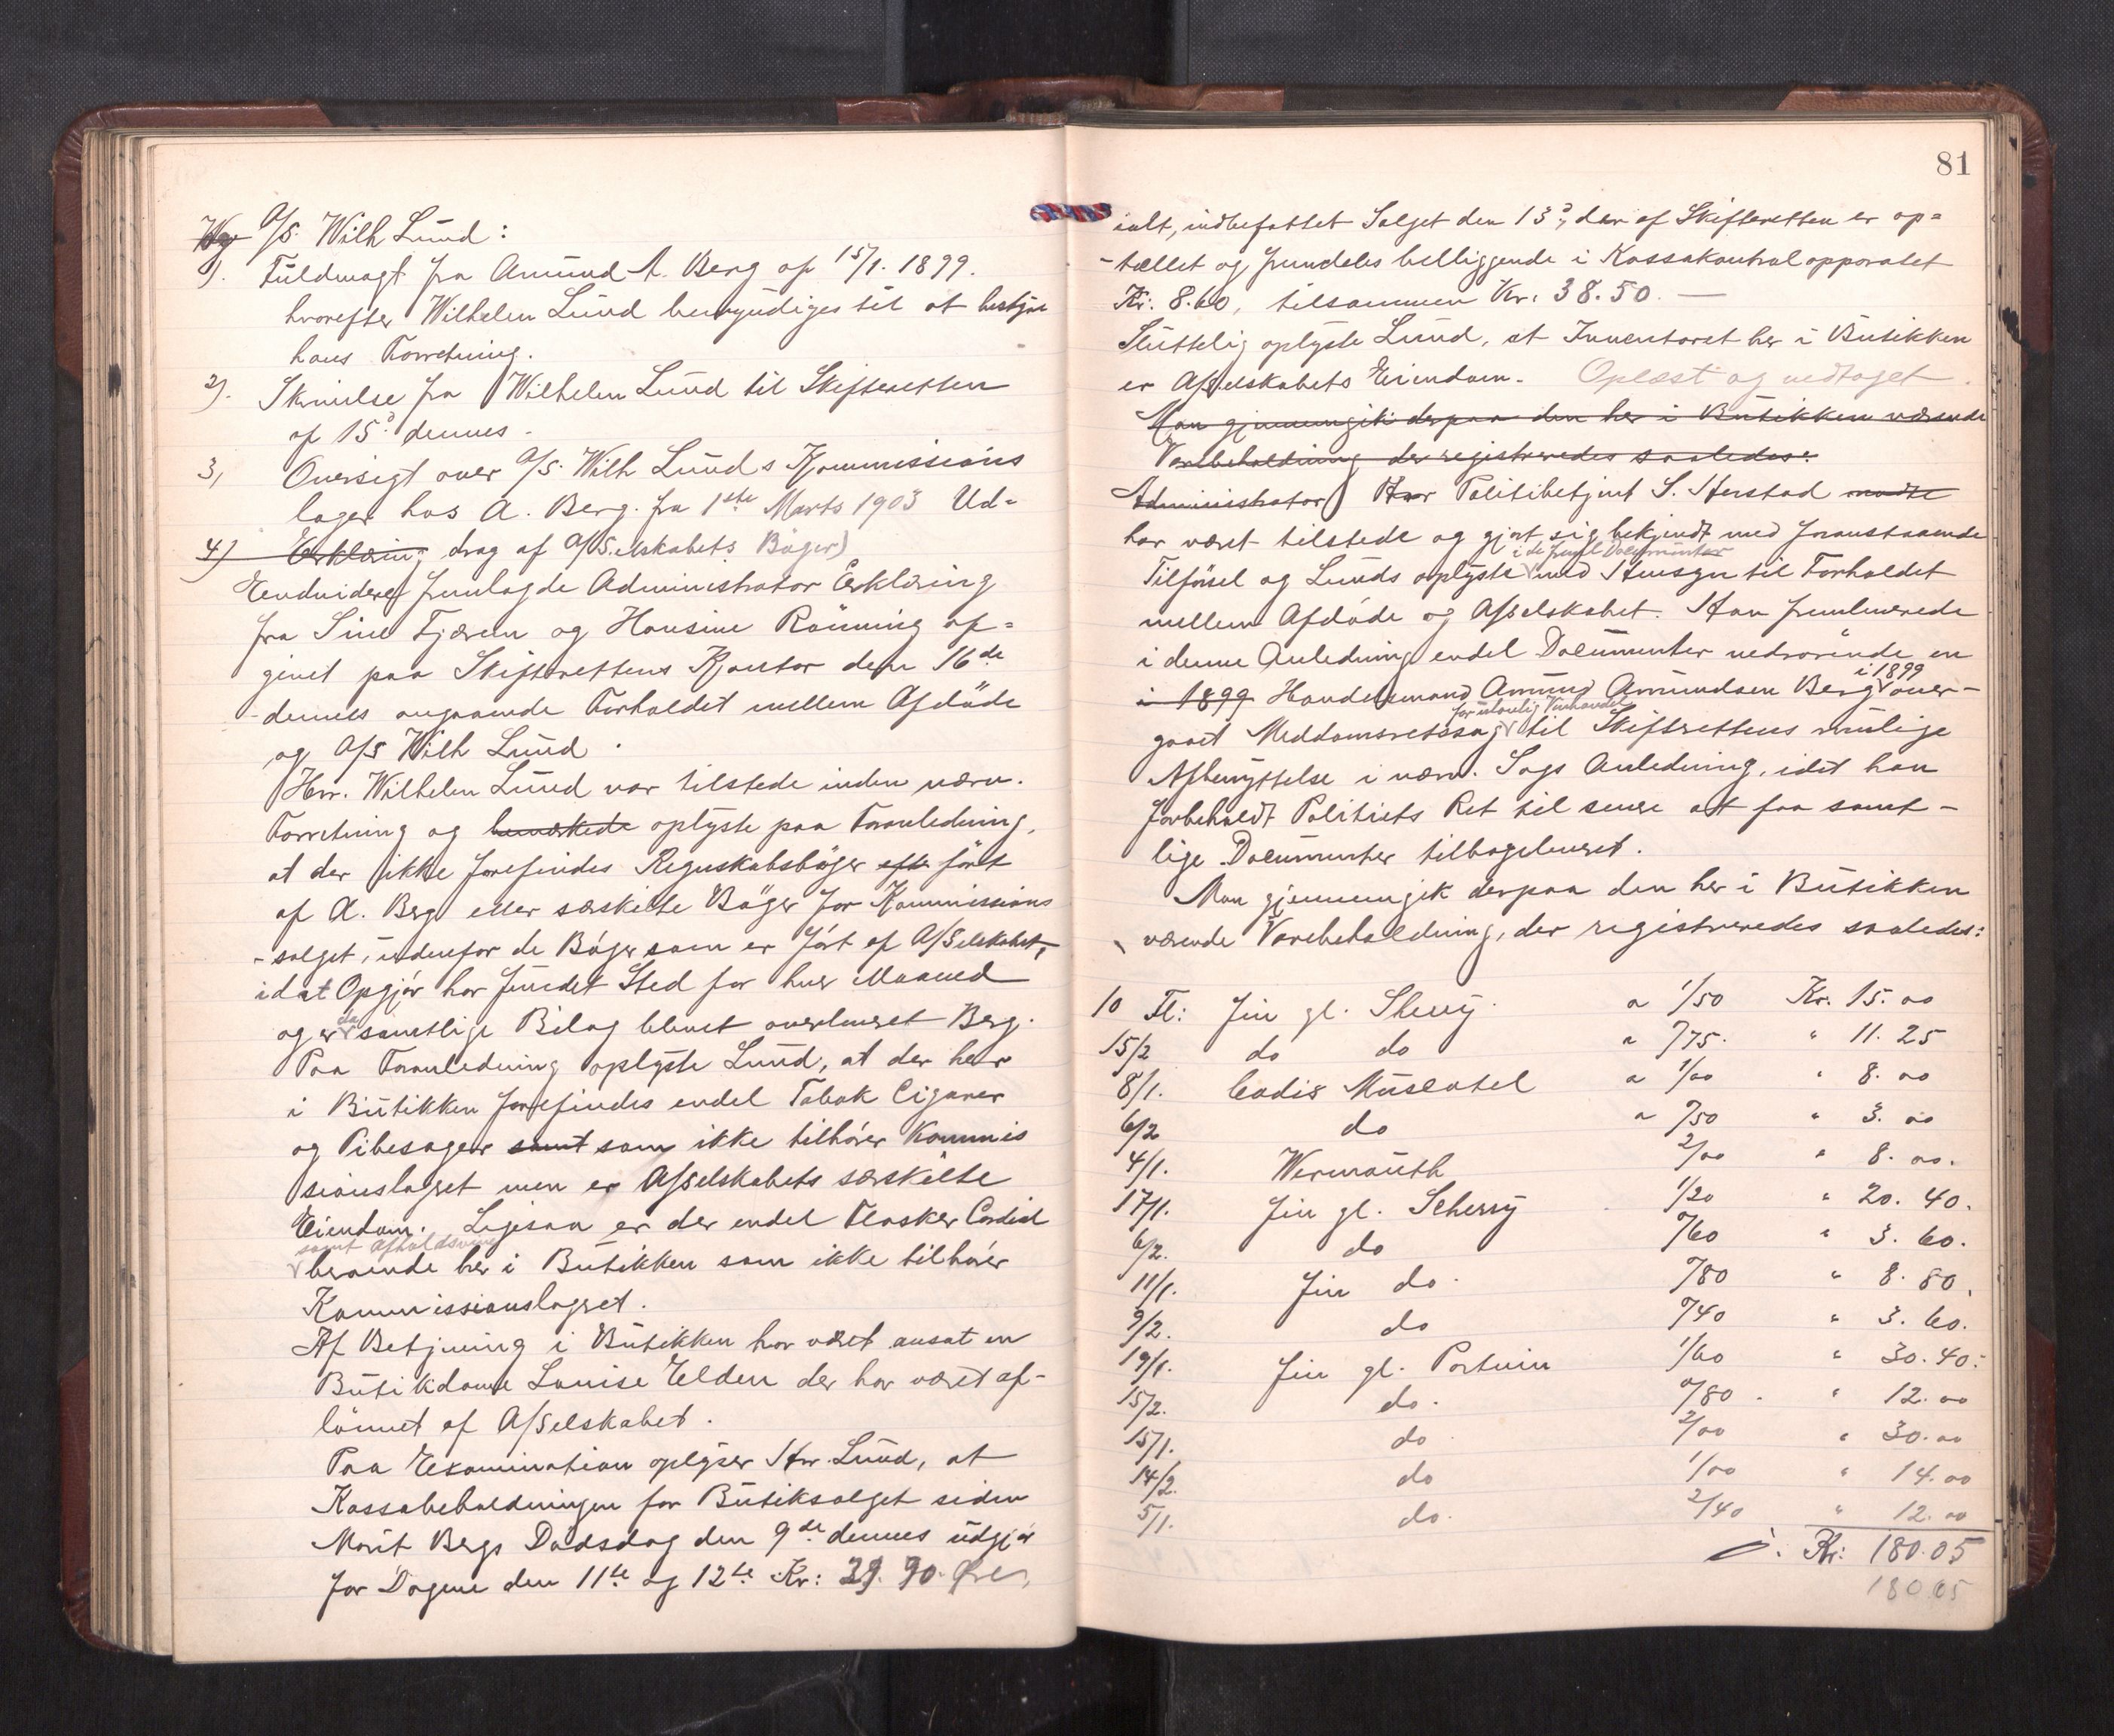 A/S. Wilh Lund:
1). Fuldmagt fra Amund A. Berg af 15/1. 1899.
hvorefter Wilhelm Lund bemyndiges til at bestyre
hans Forretning.
2). Skrivelse fra Wilhelm Lund til Skifteretten
af 15d dennes.
3, Oversigt over A/S. Wilh Lunds Kommissions
lager hos A. Berg. fra 1ste Marts 1903 Ud=
4) Erklæring drag af A/Selskabets Bøger)
Endvidere fremlagde Administrator Erklæring
fra Sine Fjærem og Hansine Rönning af=
givet paa Skifterettens Kontor den 16de
dennes angaaende Forholdet mellem Afdöde
og A/S Wilh Lund.
Hrr. Wilhelm Lund var tilstede inden nærv.
Forretning og bemærkede oplyste paa Foranledning,
at der ikke forefindes Regnskabsbøger efter ført
af A. Berg eller særskilte Bøger for Kommissions
-salget, udenfor de Bøger som er ført af A/Selskabet,
idet Opgjør har fundet Sted for hver Maaned
og er da samtlige Bilag blevet overleveret Berg.
Paa Foranledning oplyste Lund, at der her
i Butikken forefindes endel Tobak Cigarer
og Pibesager samt som ikke tilhører Kommis
sionslagret men er A/Selskabets særskilte
Eiendom. Ligesaa er der endel Flasker Cordial
samt Afholdsvine
beroende her i Butikken som ikke tilhører
Kommissionslagret.
Af Betjening i Butikken har været ansat en
Butikdame Louise Elden der har været af-
lönnet af A/Selskabet.
Paa Examination oplyser Hrr. Lund, at
Kassabeholdningen for Butiksalget siden
Marit Bergs Dødsdag den 9de dennes udgjør
for Dagene den 11te og 12te Kr: 29. 90. Øre,
81
ialt, indbefattet Salget den 13d, der af Skifteretten er op=
-tællet og fremdeles beliggende i Kassakontrolapparatet
Kr: 8.60, tilsammen Kr. 38.50. —
Sluttelig oplyste Lund, at Inventaret her i Butikken
er A/Selskabets Eiendom. Oplæst og vedtaget.
Man gjennemgik derpaa den her i Butikken værende
Varebeholdning der registreredes saaledes:
Administrator Herr Politibetjent S. Herstad mødte
har været tilstede og gjort sig bekjendt med foranstaaende
i de freml Documenter
Tilførsel og Lunds oplyste med Hensyn til Forholdet
mellem Afdøde og A/Selskabet. Han fremleverede
i denne Anledning endel Documenter vedrørende en
i 1899
i 1899 Handelsmand Amund Amundsen Berg over-
for ulovlig Vinhandel
gaaet Meddomsretssag til Skifterettens mulige
Afbenyttelse i nærv. Sags Anledning, idet han
forbeholdt Politiets Ret til senere at faa samt-
lige Documenter tilbageleveret.
Man gjennemgik derpaa den her i Butikken
værende Varebeholdning, der registreredes saaledes:
10 Fl: fin gl. Sherry. a 1/50 Kr. 15. 00
15/2 do do a 0/75. " 11. 25
8/1. Cadis Muscatel a 1/00 " 8. 00
6/2 do a 0/50 " 3. 00
4/1. Wermouth 2/00 " 8. 00.
17/1. fin gl. Scherry 1/20 " 20. 40.
6/2. do 0/60 " 3. 60.
11/1. fin do. 0/80 " 8. 80.
9/2. do 0/40 " 3. 60.
19/1. fin gl. Portvin 1/60 " 30. 40.
15/2. do. 0/80. " 12. 00
15/1. do 2/00 " 30. 00
14/2. do 1/00 " 14. 00
5/1. do. 2/40 " 12. 00
Kr: 180.05
180.05